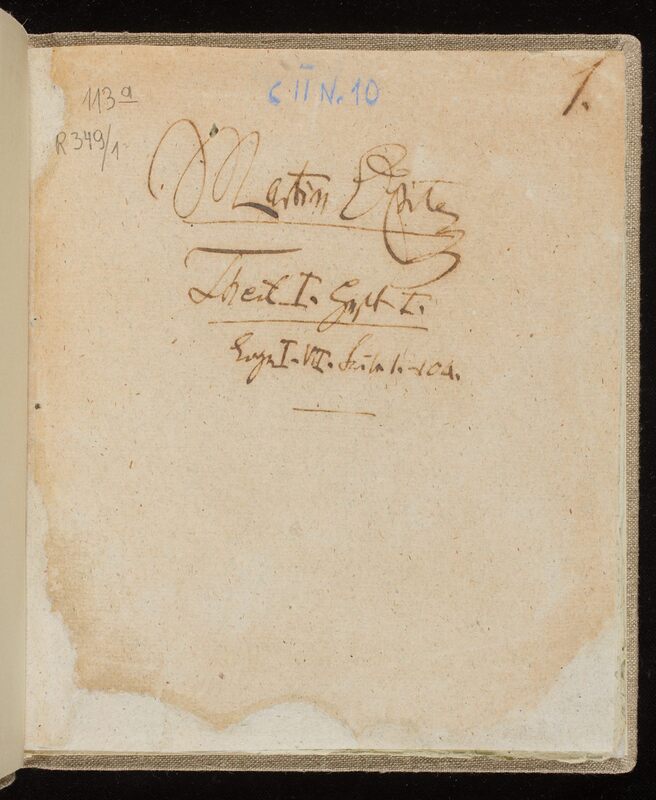 113a
R 349/1
C II N. 10
1.
Martin Opitz
Theil I. Heft I.
I-VI. Seite 1-104.